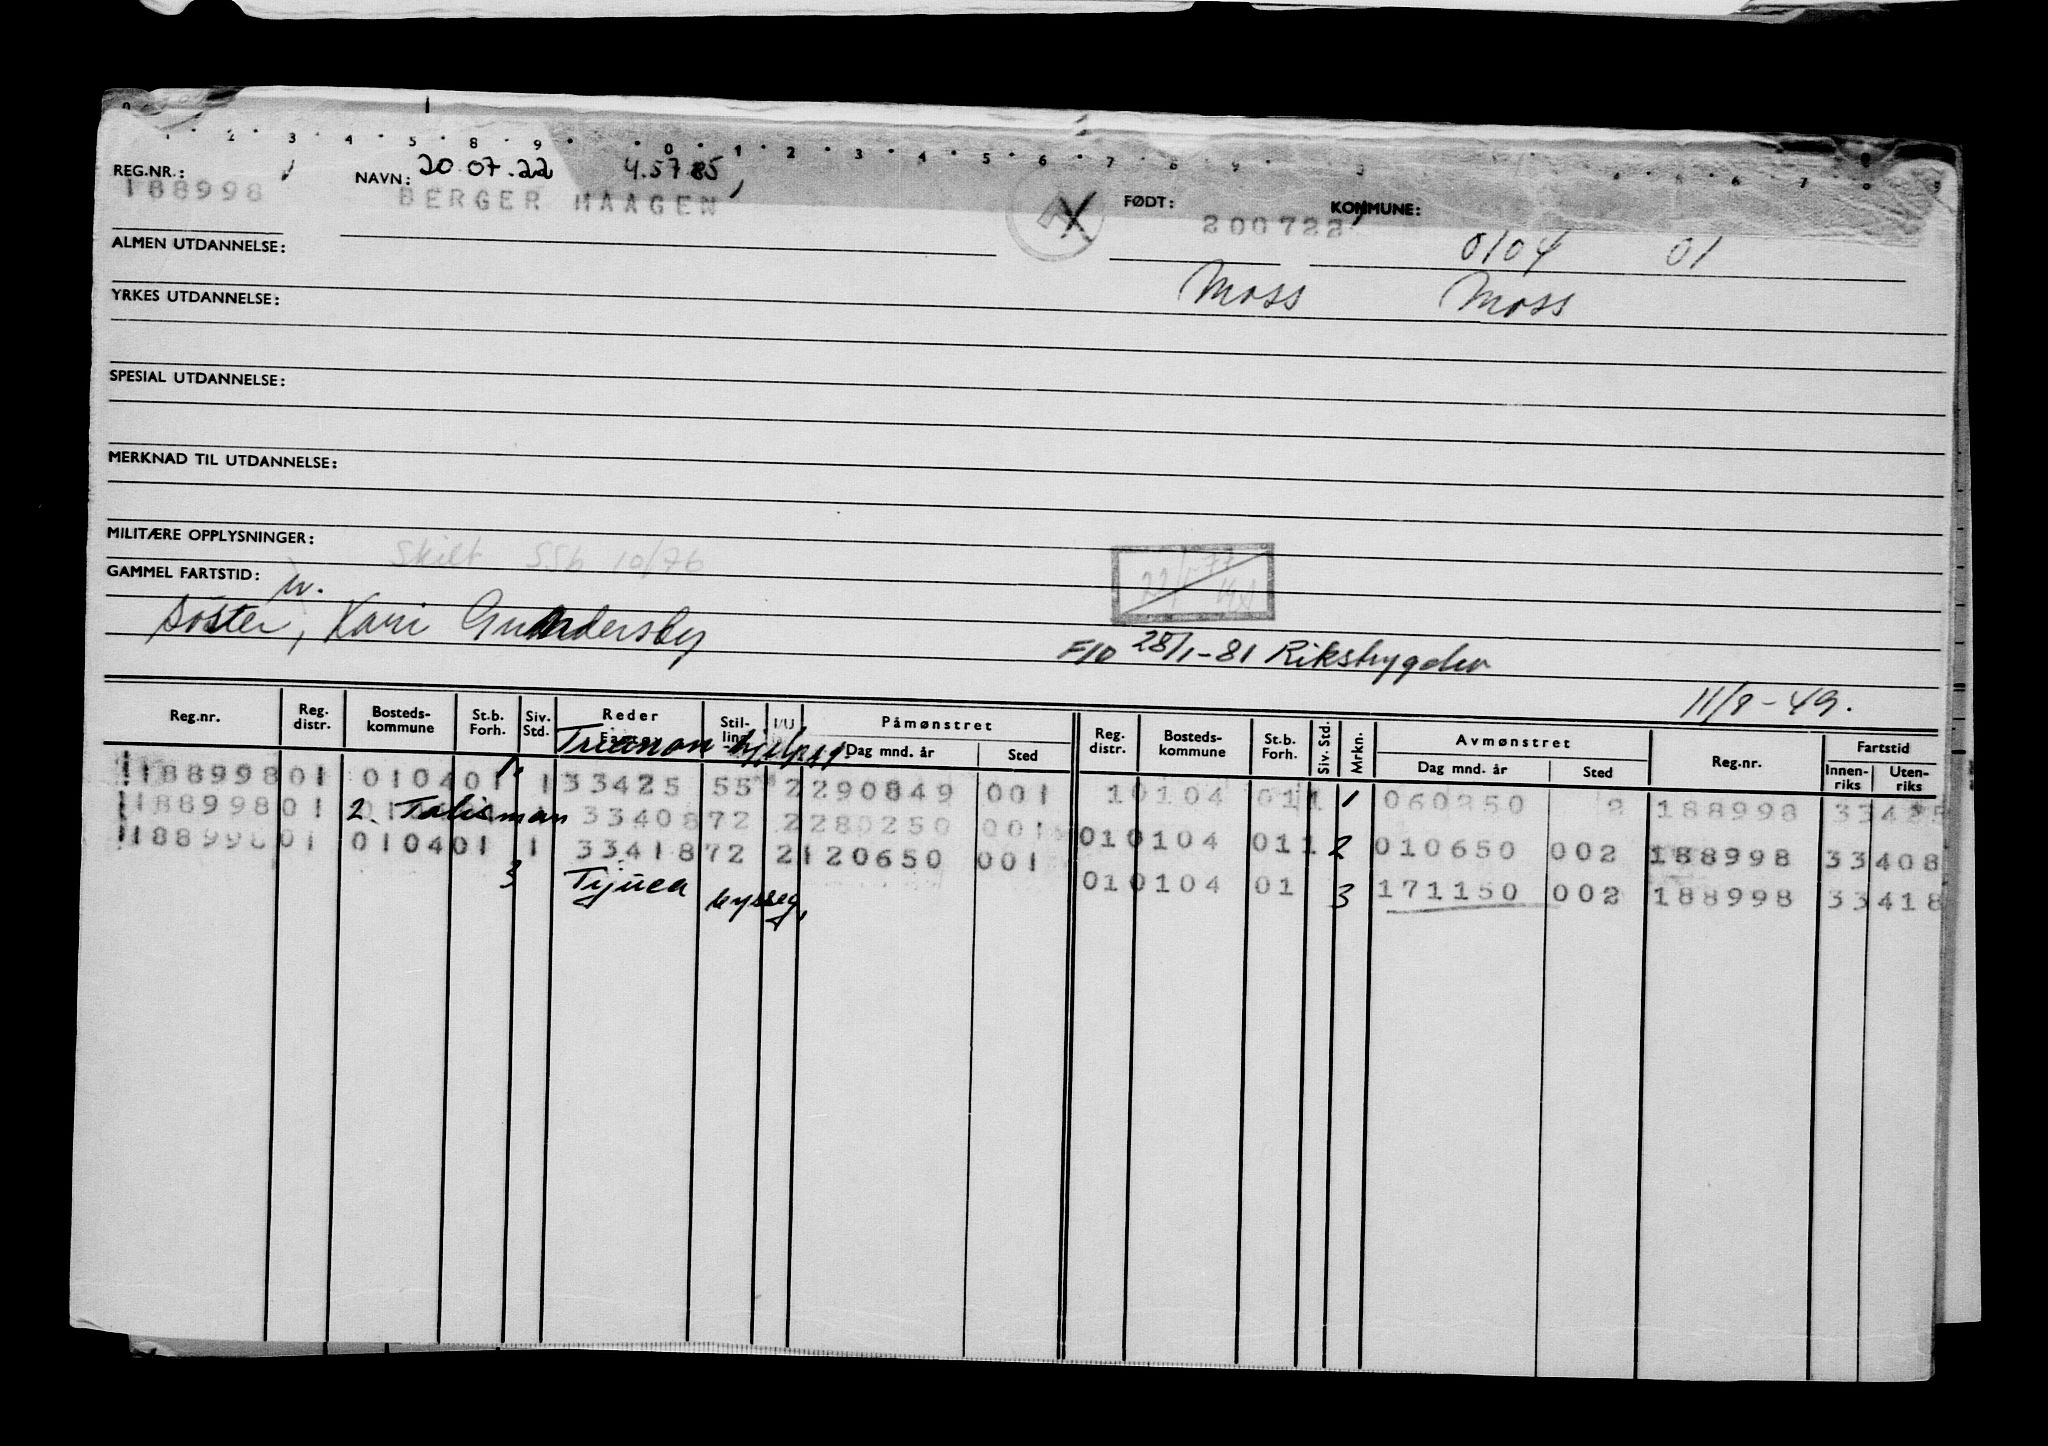 1 2 3 4 5 8 9 0 1 2 3 4 5 6 7 8
REG.NR.: 188998 NAVN: 20 07.22 45785
BERGER HAAGEN FØDT: 200722 KOMMUNE:
0104 01
ALMEN UTDANNELSE:
Moss Moss
YRKES UTDANNELSE:
SPESIAL UTDANNELSE:
MERKNAD TIL UTDANNELSE:
MILITÆRE OPPLYSNINGER: Skilt SSb 10/76
GAMMEL FARTSTID:
Søster, Kari
F/D 28/1-81 Riksbygden
11/8-49.
Reg.nr. Reg. distr. Bosteds-kommune St.b. Forh. Siv. Std. Reder Stil-ling I/U Påmønstret Dag mnd. år Sted Reg. distr. Bosteds-kommune St.b. Forh. Siv. Std. Mrkn. Avmønstret Dag mnd. år Sted Reg.nr. Fartstid Innen-riks Uten-riks
1. Trianon
188998 01 0104 01 1 33425 55 2 290849 001 1 0104 01 1 1 060250 2 188998 33425
2. Talisman
188998 01 1 33408 72 2 280250 001 01 0104 01 1 2 010650 002 188998 33408
188998 01 0104 01 1 33418 72 2 120650 001 01 0104 01 3 171150 002 188998 33418
3 Tijuca bysseg,